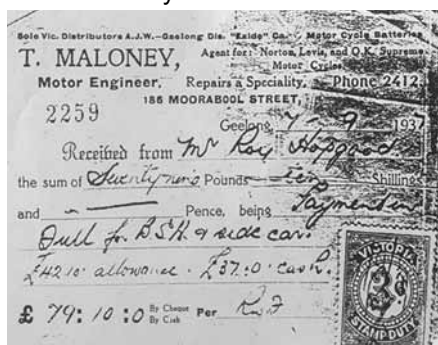 Sole Vic. Distributors A.J.W.—Geelong Dis. "Exide" Ca. Motor Cycle Batteries
T. MALONEY,
Agent for: Norton, Levis, and O.K. Supreme
Motor Cycles
Motor Engineer. Repairs a Speciality. Phone 2412
186 MOORABOOL STREET,
2259
Geelong, 7-9-1937
Received from Mr Roy Hopgood
the sum of Seventynine Pounds ten Shillings
and Pence, being Payment in
Full for B.S.A & side car.
£42.10 allowance. £37:0 cash.
£ 79:10:0 By Cheque
By Cash Per
VICTORIA
STAMP DUTY